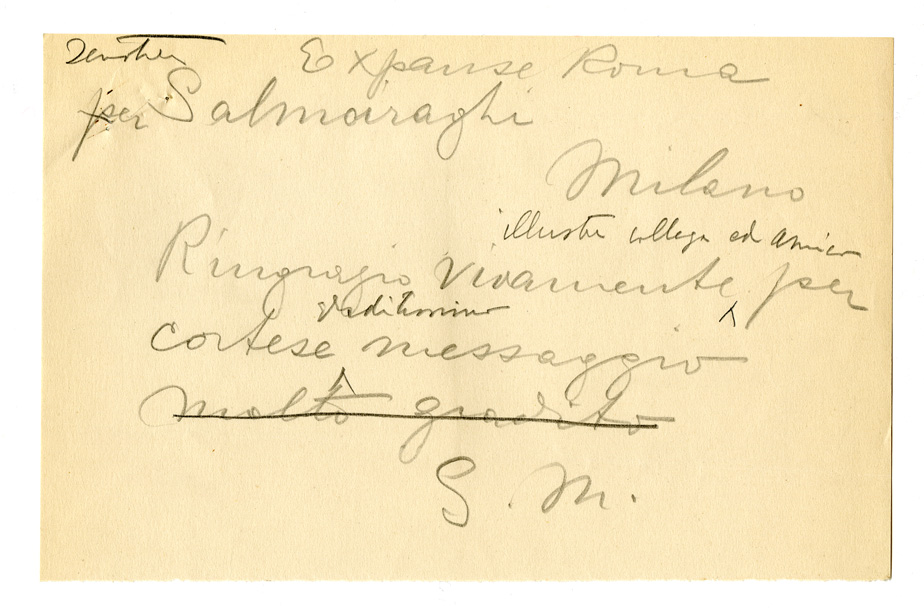 Senatore Expanse Roma
per Salmoiraghi
Milano
illustre collega ed amico
Ringrazio vivamente per
graditissimo
cortese messaggio
molto gradito
G. M.